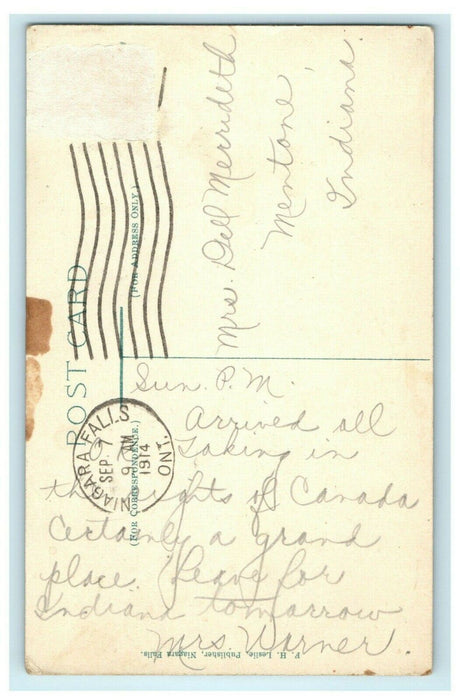 POST CARD
(FOR ADDRESS ONLY.)
(FOR CORRESPONDENCE.)
NIAGARA FALLS
SEP 7
9 AM
1914
ONT.
Mrs. Dell Merrideth
Mentone,
Indiana
Sun. P.M.
Arrived all
Taking in
the sights of Canada
Certainly a grand
place. Leave for
Indiana tomorrow
Mrs Warner
F. H. Leslie, Publisher, Niagara Falls.